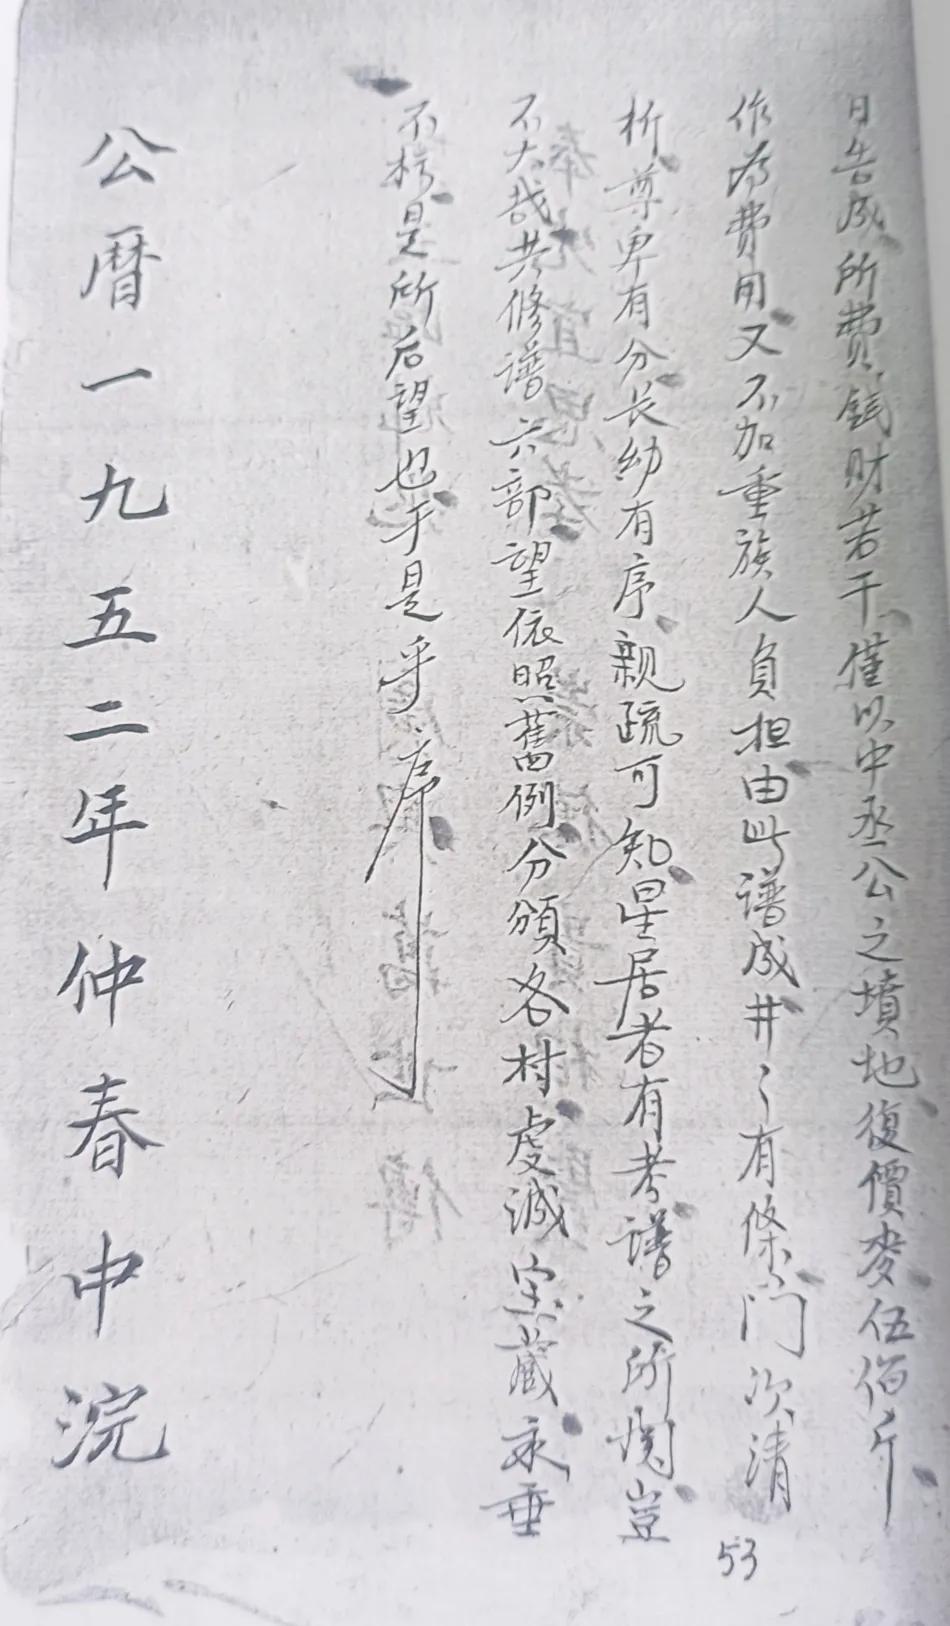 日告成所费錢财若干僅以中丞公之墳地復價麥伍佰斤
作为費用又不加重族人負担由此谱成井々有條门次清
析尊卑有分长幼有序親疏可知星居者有考譜之所関豈
不大哉共修谱六部望依照舊例分頒各村虔诚宝藏永垂
不朽是所后望也于是乎序
公曆一九五二年仲春中浣
53